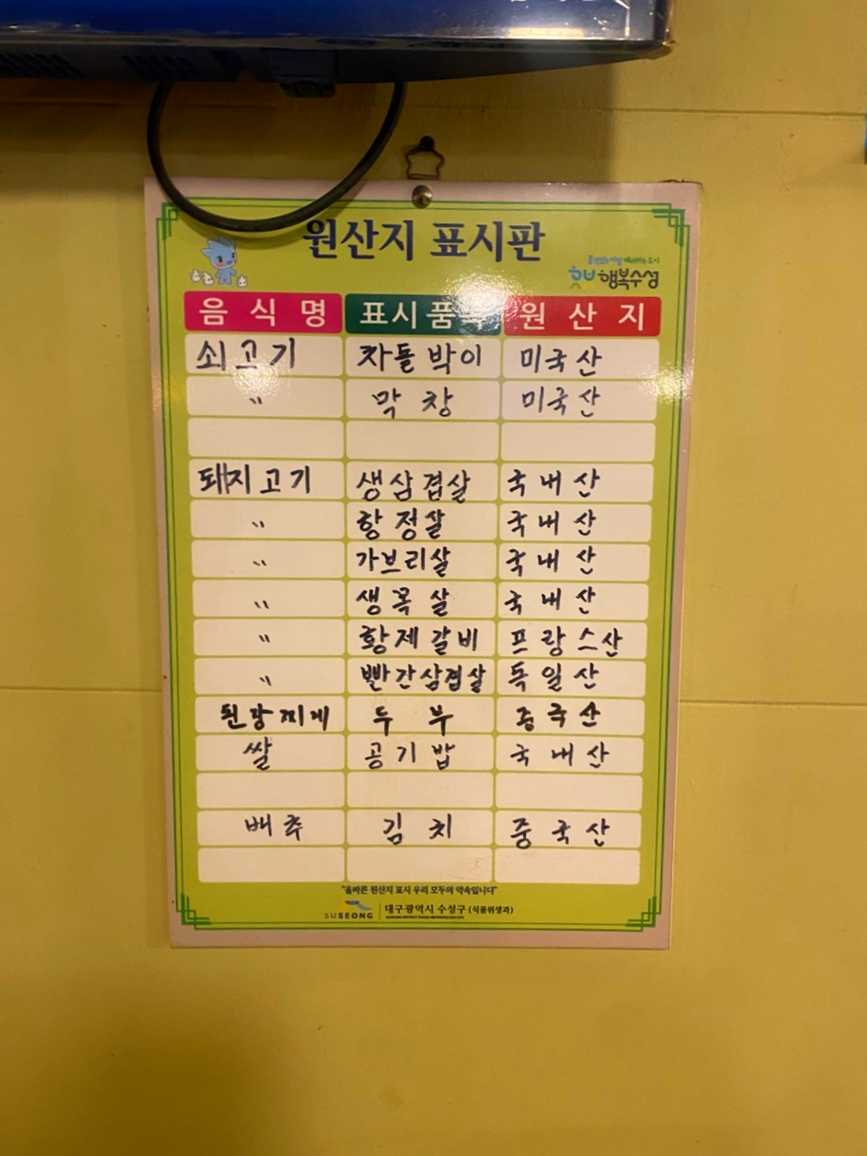 원산지 표시판
행복수성
음식명 표시품목 원산지
쇠고기 차돌박이 미국산
" 막창 미국산
돼지고기 생삼겹살 국내산
" 항정살 국내산
" 가브리살 국내산
" 생목살 국내산
" 황제갈비 프랑스산
" 빨간삼겹살 독일산
된장찌게 두부 중국산
쌀 공기밥 국내산
배추 김치 중국산
"올바른 원산지 표시 우리 모두의 약속입니다"
SUSEONG 대구광역시 수성구 (식품위생과)